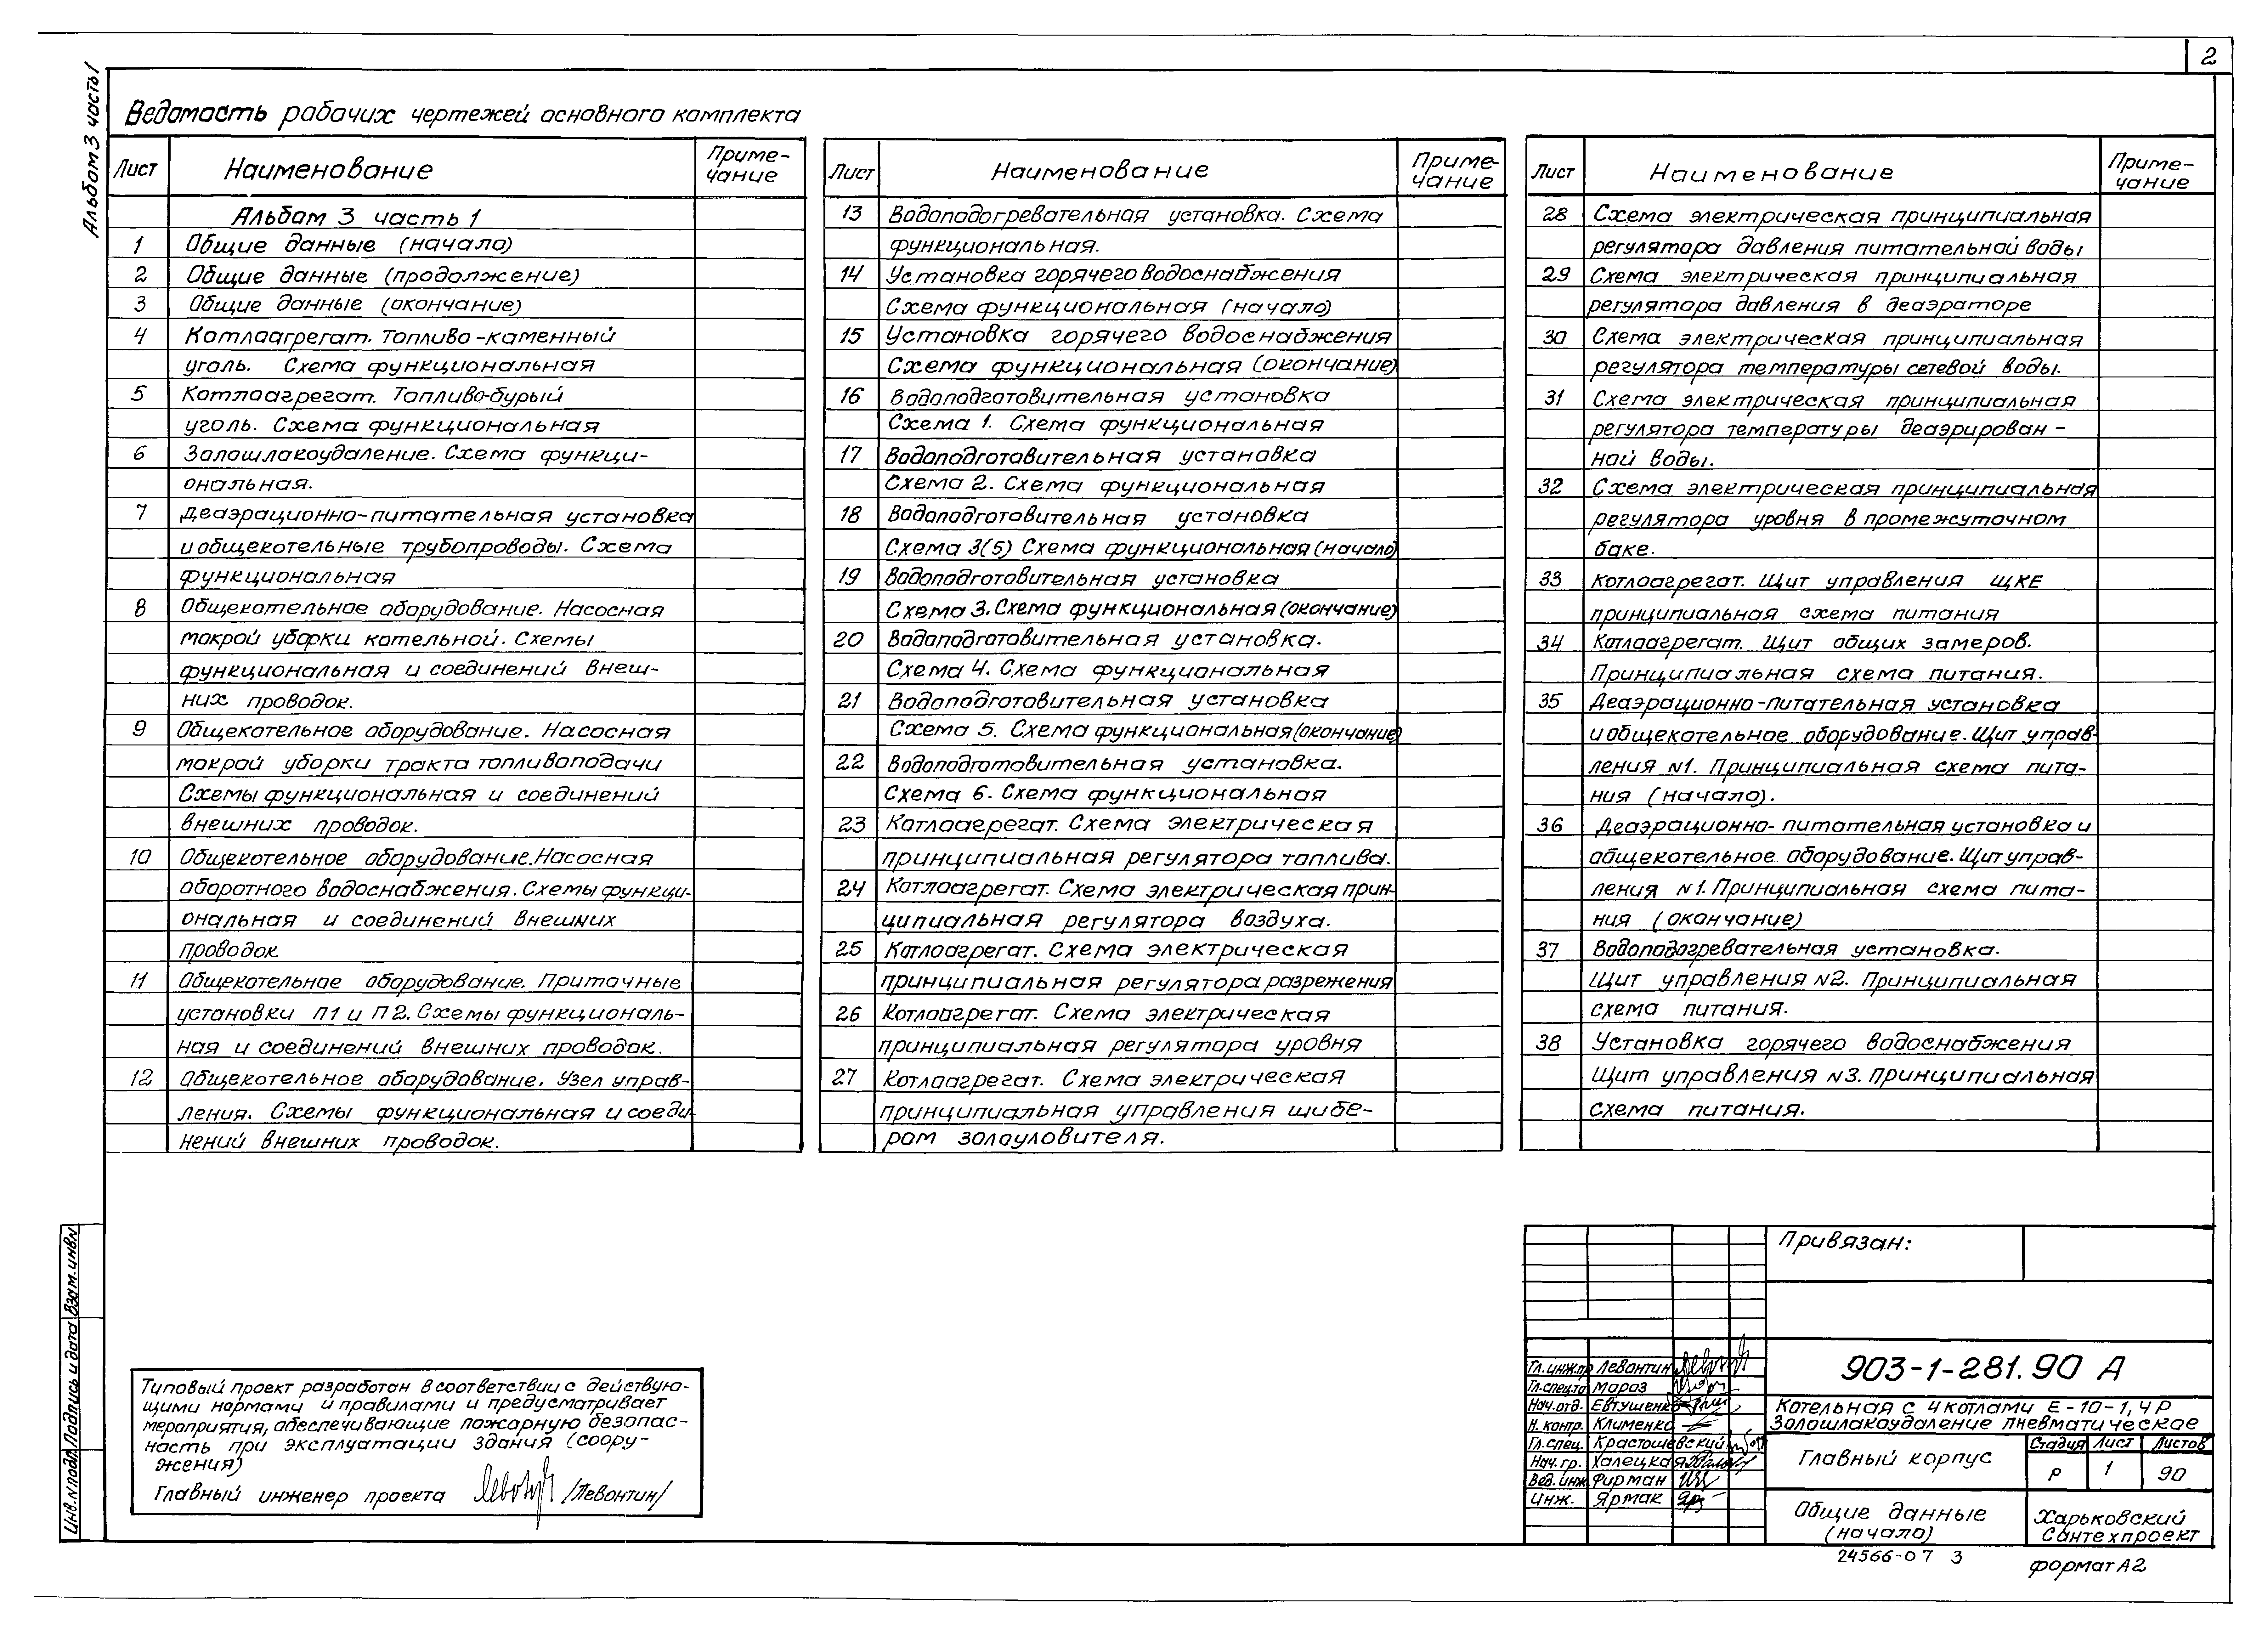 2
Альбом 3 часть 1
Ведомость рабочих чертежей основного комплекта
Лист Наименование Приме-
чание
Альбом 3 часть 1
1 Общие данные (начало)
2 Общие данные (продолжение)
3 Общие данные (окончание)
4 Котлоагрегат. Топливо-каменный
уголь. Схема функциональная
5 Котлоагрегат. Топливо-бурый
уголь. Схема функциональная
6 Золошлакоудаление. Схема функци-
ональная.
7 Деаэрационно-питательная установка
и общекотельные трубопроводы. Схема
функциональная
8 Общекотельное оборудование. Насосная
мокрой уборки котельной. Схемы
функциональная и соединений внеш-
них проводок.
9 Общекотельное оборудование. Насосная
мокрой уборки тракта топливоподачи
Схемы функциональная и соединений
внешних проводок.
10 Общекотельное оборудование. Насосная
оборотного водоснабжения. Схемы функци-
ональная и соединений внешних
проводок
11 Общекотельное оборудование. Приточные
установки П1 и П2. Схемы функциональ-
ная и соединений внешних проводок.
12 Общекотельное оборудование. Узел управ-
ления. Схемы функциональная и соеди-
нений внешних проводок.
Лист Наименование Приме-
чание
13 Водоподогревательная установка. Схема
функциональная.
14 Установка горячего водоснабжения
Схема функциональная (начало)
15 Установка горячего водоснабжения
Схема функциональная (окончание)
16 Водоподготовительная установка
Схема 1. Схема функциональная
17 Водоподготовительная установка
Схема 2. Схема функциональная
18 Водоподготовительная установка
Схема 3(5) Схема функциональная (начало)
19 Водоподготовительная установка
Схема 3. Схема функциональная (окончание)
20 Водоподготовительная установка.
Схема 4. Схема функциональная
21 Водоподготовительная установка
Схема 5. Схема функциональная (окончание)
22 Водоподготовительная установка.
Схема 6. Схема функциональная
23 Котлоагрегат. Схема электрическая
принципиальная регулятора топлива.
24 Котлоагрегат. Схема электрическая прин-
ципиальная регулятора воздуха.
25 Котлоагрегат. Схема электрическая
принципиальная регулятора разрежения
26 Котлоагрегат. Схема электрическая
принципиальная регулятора уровня
27 Котлоагрегат. Схема электрическая
принципиальная управления шибе-
ром золоуловителя.
Лист Наименование Приме-
чание
28 Схема электрическая принципиальная
регулятора давления питательной воды
29 Схема электрическая принципиальная
регулятора давления в деаэраторе
30 Схема электрическая принципиальная
регулятора температуры сетевой воды.
31 Схема электрическая принципиальная
регулятора температуры деаэрирован-
ной воды.
32 Схема электрическая принципиальная
регулятора уровня в промежуточном
баке.
33 Котлоагрегат. Щит управления ЩКЕ
принципиальная схема питания
34 Котлоагрегат. Щит общих замеров.
Принципиальная схема питания.
35 Деаэрационно-питательная установка
и общекотельное оборудование. Щит управ-
ления N1. Принципиальная схема пита-
ния (начало).
36 Деаэрационно-питательная установка и
общекотельное оборудование. Щит управ-
ления N1. Принципиальная схема пита-
ния (окончание)
37 Водоподогревательная установка.
Щит управления N2. Принципиальная
схема питания.
38 Установка горячего водоснабжения
Щит управления N3. Принципиальная
схема питания.
Типовый проект разработан в соответствии с действую-
щими нормами и правилами и предусматривает
мероприятия, обеспечивающие пожарную безопас-
ность при эксплуатации здания (соору-
жения)
Главный инженер проекта /Левонтин/
Инв.N подл. Подпись и дата Взам.инв.N
Привязан:
Гл.инж.пр Левонтин
Гл.спец.то Мороз
Нач.отд. Евтушенко
Н.контр. Клименко
Гл.спец. Крастошевский
Нач.гр. Халецкая
Вед.инж Фирман
Инж. Ярмак
903-1-281.90 А
Котельная с 4 котлами Е-10-1,4Р
Золошлакоудаление пневматическое
Главный корпус
Стадия Лист Листов
Р 1 90
Общие данные
(начало)
Харьковский
Сантехпроект
24566-07 3
формат А2